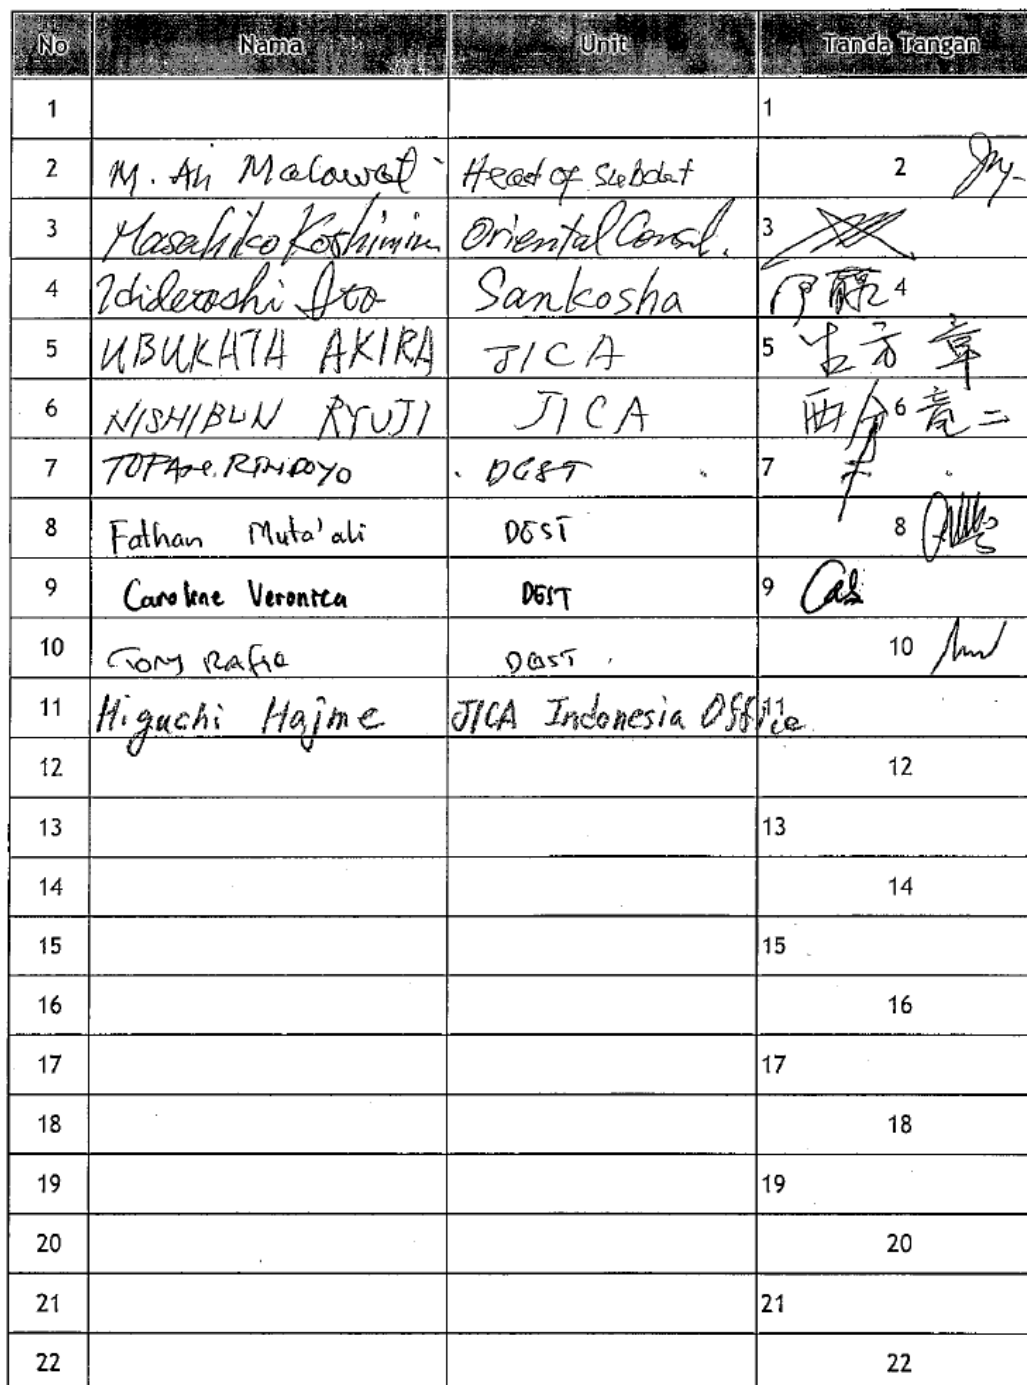 No Nama Unit Tanda Tangan
1 1
2 M. Ali Head of Subdat 2
3 Masahiko Koshimizu Oriental Consul. 3
4 Hideroshi Ito Sankosha 伊藤 4
5 UBUKATA AKIRA JICA 5 生方 章
6 NISHIBUN RYUJI JICA 西分 6 竜二
7 DGST 7
8 Fathan Muta'ali DGST 8
9 Caroline Veronica DGST 9
10 Tony Rafie DGST 10
11 Higuchi Hajime JICA Indonesia Office 11
12 12
13 13
14 14
15 15
16 16
17 17
18 18
19 19
20 20
21 21
22 22